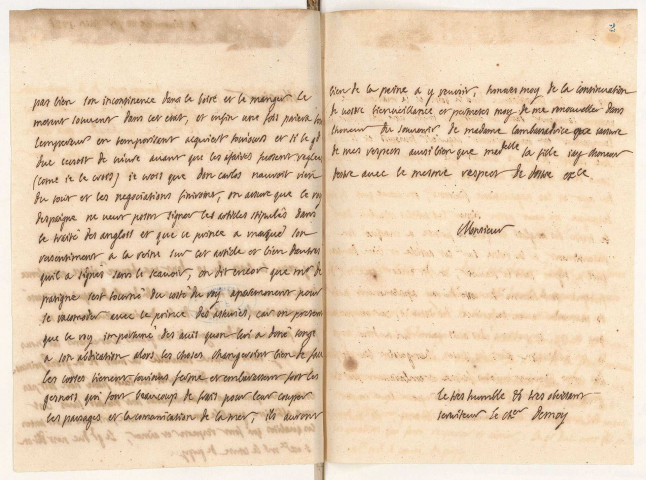 2
pas bien son incontinence dans le boire et le manger le
metent souvent dans cet etat, et enfin une fois
lempereur en temporisent acquiert tousiours et si le gd
duc cessoit de vivre avant que les afaires fussent reglees
(come ie le crois) ie vois que don carlos nauroit rien
du tout et les negotiations finiroient, on assure que le roy
despaigne ne veut point signer les articles stipulés dans
le traité des anglois et que ce prince a marqué son
resentiment à la reine sur cet article et bien dautres
quil a signés sans le scavoir, on dit encor que mr de
patigne sest tourné du costé du roy aparemment pour
se racomoder avec le prince des asturies, car on pretend
que le roy importuné des avis quon lui a doné songe
a son abdication alors les choses changeroient bien de face
les corses tienent tousiours ferme et embarassent fort les
genois qui font beaucoup de frais pour leur couper
les passages et la comunication de la mer, ils auront
bien de la peine a y reussir, honores moy de la continuation
de vostre bienveillance et permetes moy de me renouveller dans
lhoneur du souvenir de madame lambasadrice que iassure
de mes respects aussi bien que madelle sa fille iay lhoneur
destre avec le mesme respect de vostre exce
Monsieur
le tres humble & tres obeissant
serviteur le cher